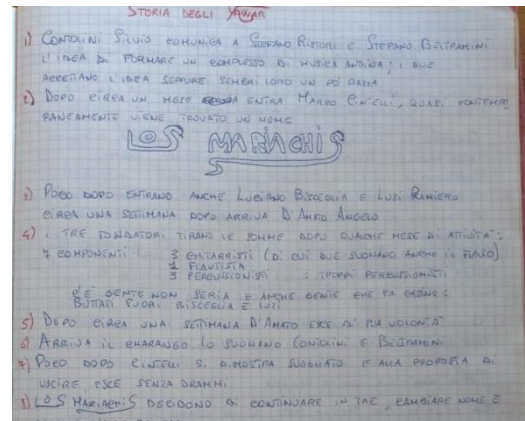 STORIA DEGLI YAWAR
1) CONTOLINI SILVIO COMUNICA A STEFANO RISTORI E STEFANO BELTRAMINI
L'IDEA DI FORMARE UN COMPLESSO DI MUSICA ANDINA; I DUE
ACCETTANO L'IDEA SEPPURE SEMBRI LORO UN PÒ PAZZA
2) DOPO CIRCA UN MESE ENTRA MARCO CINTELLI, QUASI CONTEMPO
RANEAMENTE VIENE TROVATO UN NOME
LOS MARIACHIS
3) POCO DOPO ENTRANO ANCHE LUCIANO BISCEGLIA E LUCI RANIERO
CIRCA UNA SETTIMANA DOPO ARRIVA D'AMATO ANGELO
4) I TRE FONDATORI TIRANO LE SOMME DOPO QUALCHE MESE DI ATTIVITA':
7 COMPONENTI: 3 CHITARRISTI (DI CUI DUE SUONANO ANCHE IL FLAUTO)
1 FLAUTISTA
3 PERCUSSIONISTI I TROPPI PERCUSSIONISTI
C'È GENTE NON SERIA E ANCHE GENTE CHE FA CASINO:
BUTTATI FUORI BISCEGLIA E LUCI
5) DOPO CIRCA UNA SETTIMANA D'AMATO ESCE DI SUA VOLONTÀ
6) ARRIVA IL CHARANGO LO SUONANO CONTOLINI E BELTRAMINI
7) POCO DOPO CINTELLI SI DIMOSTRA SVOGLIATO E ALLA PROPOSTA DI
USCIRE ESCE SENZA DRAMMI
8) LOS MARIACHIS DECIDONO DI CONTINUARE IN TRE, CAMBIARE NOME E